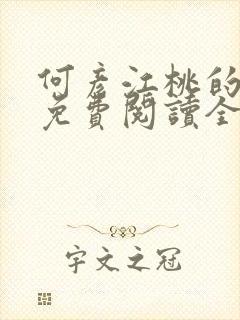 何彥江桃的
免費閱讀全
宇文之冠